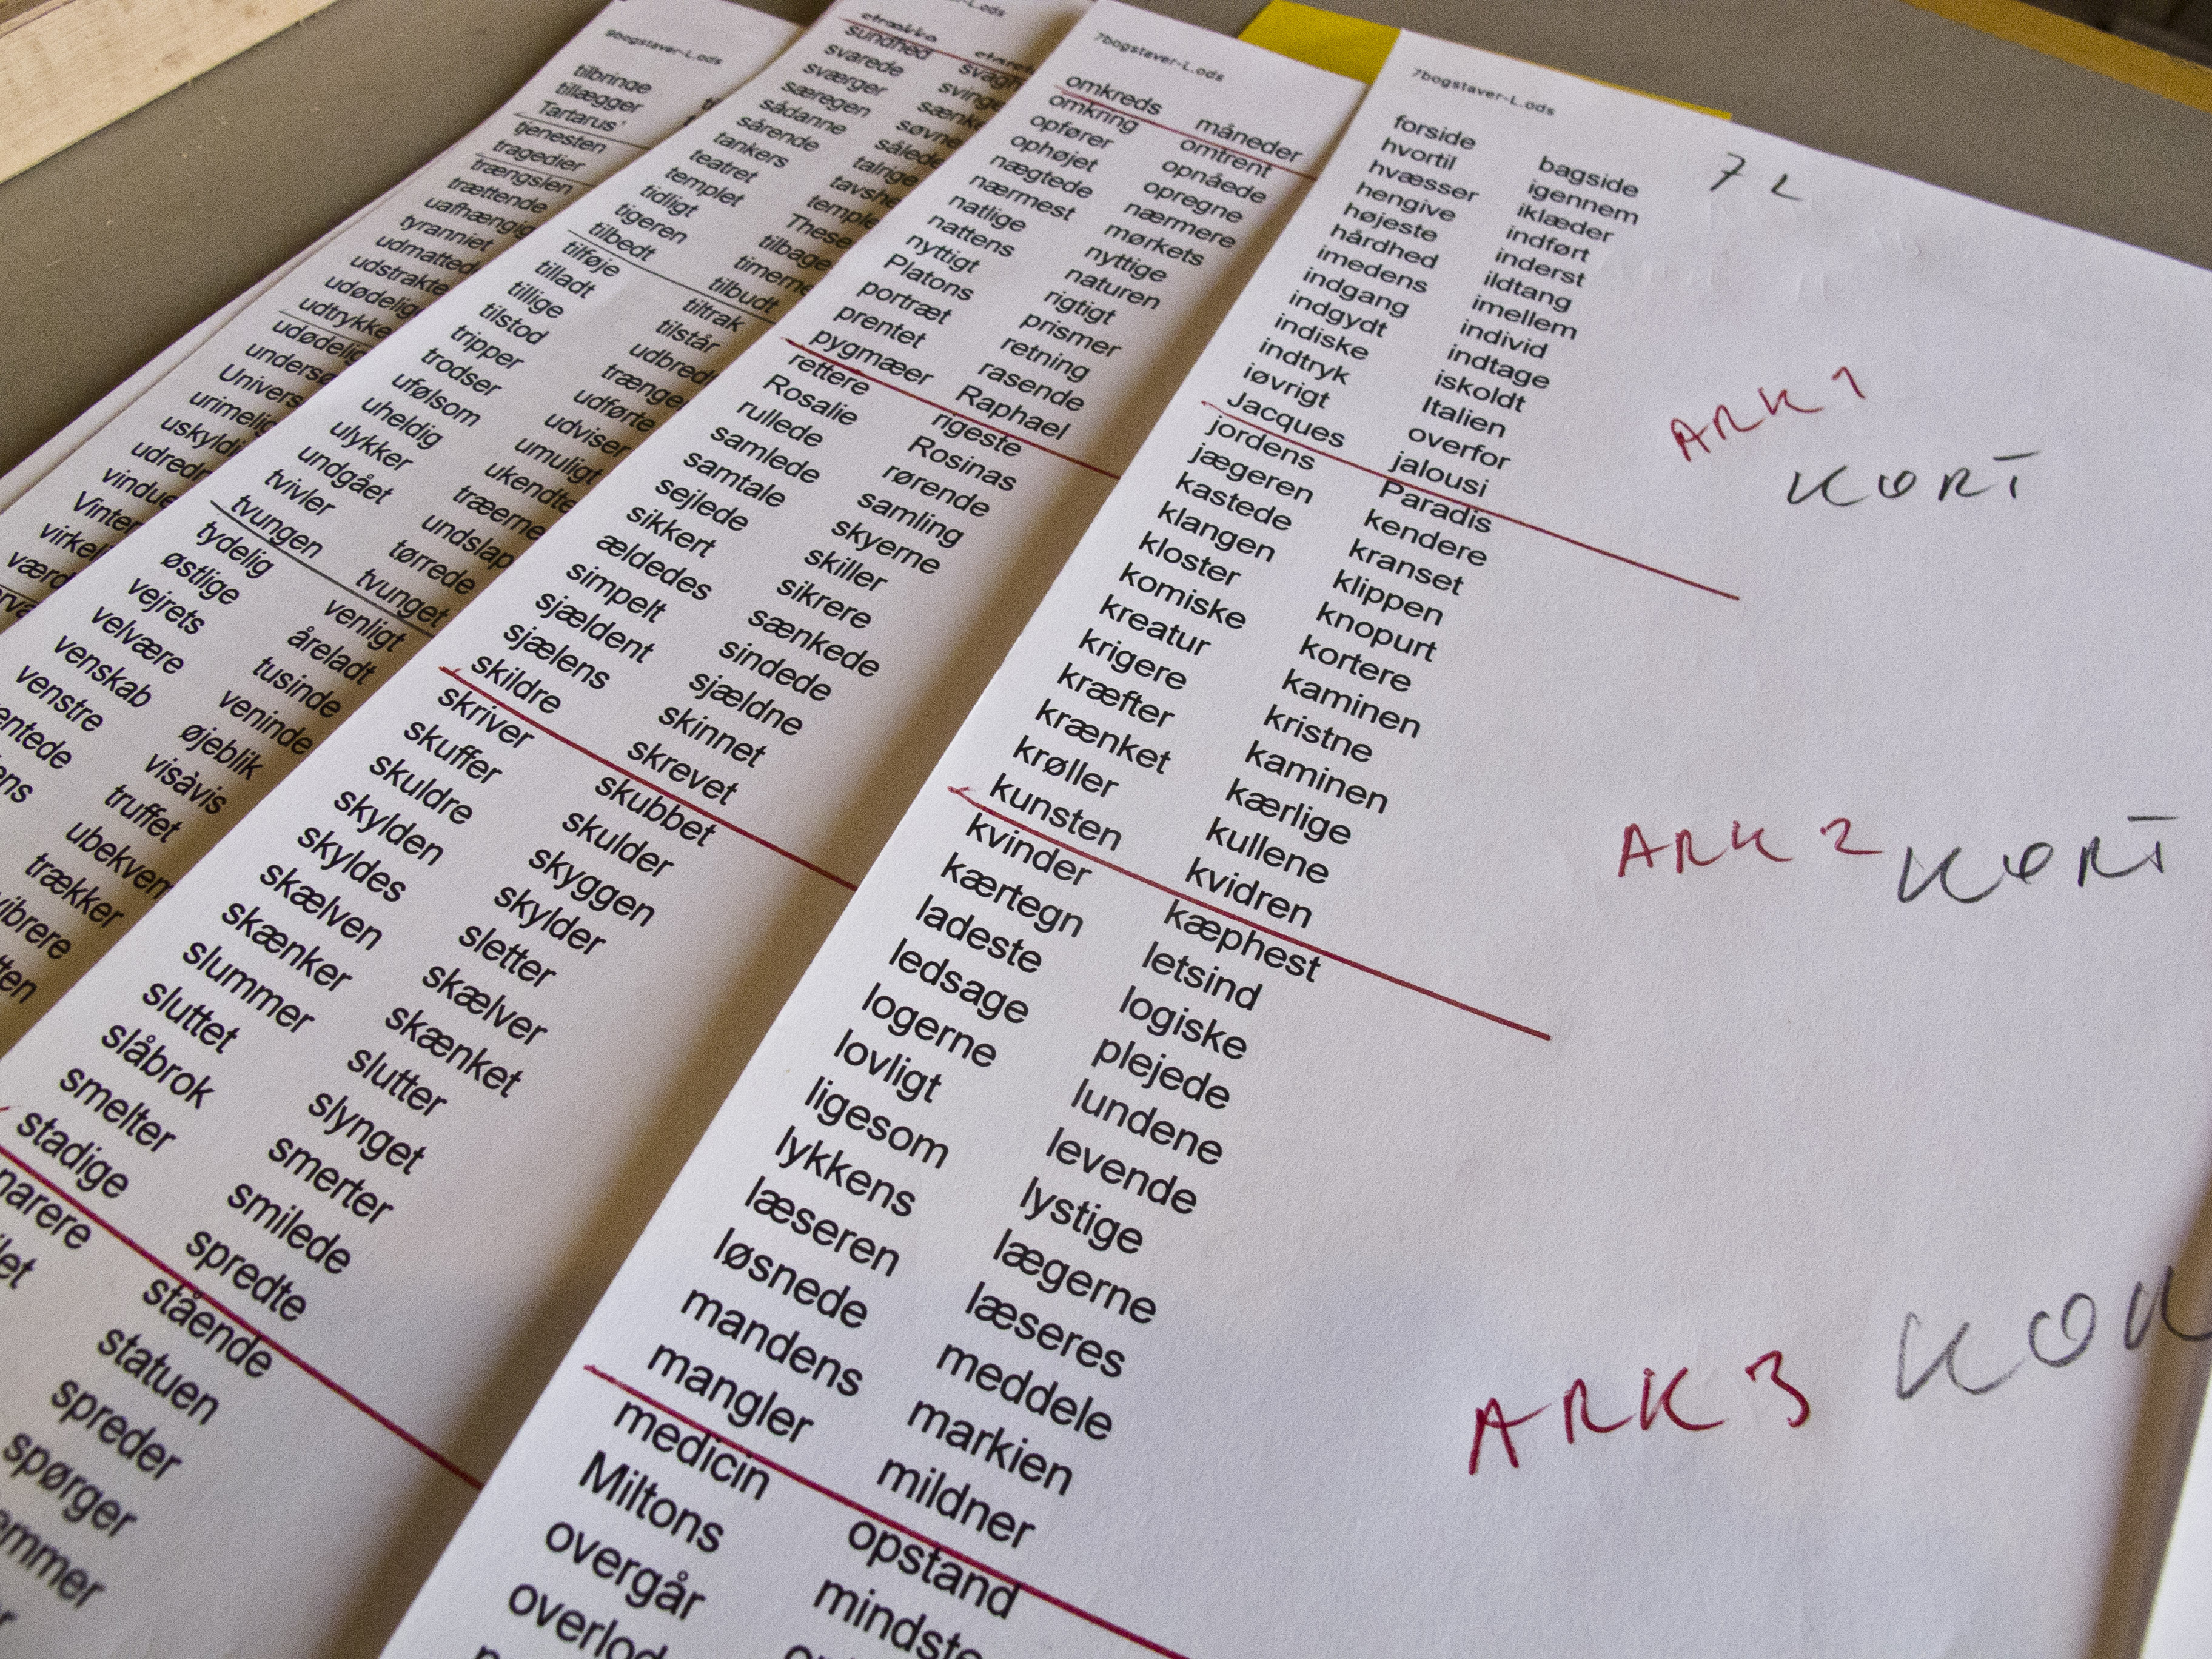 9bogstaver-L.ods
tilbringe
tillægger
Tartarus'
tjenesten
tragedier
trængslen
trættende
uafhængig
tyranniet
udmatted
udstrakte
udødelig
udtrykke
udødelig
sundhed
svarede svinge
sværger sænke
særegen søvne
sådanne sålede
sårende talrige
tankers tavshe
teatret temple
templet These
tidligt tilbage
tigeren timerne
tilbedt tilbudt
tilføje tiltrak
tilladt tilstår
tillige udbredt
tilstod trænger
tripper udførte
trodser udviser
ufølsom umuligt
uheldig ukendte
ulykker træerne
undgået undslap
tvivler tørrede
tvungen tvunget
tydelig venligt
østlige åreladt
vejrets tusinde
velvære veninde
venskab øjeblik
venstre visåvis
truffet
ubekvem
trækker
7bogstaver-L.ods
omkreds måneder
omkring omtrent
opfører opnåede
ophøjet opregne
nægtede nærmere
nærmest mørkets
natlige nyttige
nattens naturen
nyttigt rigtigt
Platons prismer
portræt retning
prentet rasende
pygmæer Raphael
rettere rigeste
Rosalie Rosinas
rullede rørende
samlede samling
samtale skyerne
sejlede skiller
sikkert sikrere
ældedes sænkede
simpelt sindede
sjældent sjældne
sjælens skinnet
skildre skrevet
skriver skubbet
skuffer skulder
skuldre skyggen
skylden skylder
skyldes sletter
skælven skælver
skænker skænket
slummer slutter
sluttet slynget
slåbrok smerter
smelter smilede
stadige spredte
stående
statuen
spreder
spørger
7bogstaver-L.ods
7 L
forside bagside
hvortil igennem
hvæsser iklæder
hengive indført
højeste inderst
hårdhed ildtang
imedens imellem
indgang individ
indgydt indtage
indiske iskoldt
indtryk Italien
iøvrigt overfor
Jacques jalousi
ARK 1
KORT
jordens Paradis
jægeren kendere
kastede kranset
klangen klippen
kloster knopurt
komiske kortere
kreatur kaminen
krigere kristne
kræfter kaminen
krænket kærlige
krøller kullene
kunsten kvidren
ARK 2 KORT
kvinder kæphest
kærtegn letsind
ladeste logiske
ledsage plejede
logerne lundene
lovligt levende
ligesom lystige
lykkens lægerne
læseren læseres
løsnede meddele
mandens markien
mangler mildner
ARK 3
medicin opstand
Miltons mindste
overgår